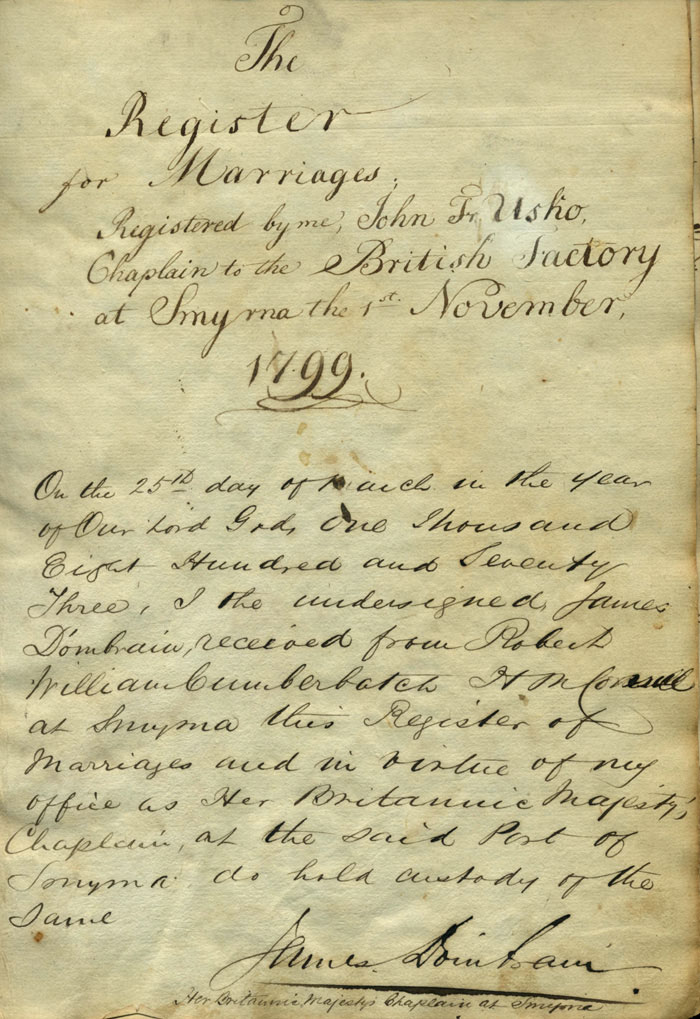 The
Register
for Marriages,
Registered by me, John Fr. Usko,
Chaplain to the British Factory
at Smyrna the 1st. November,
1799.
On the 25th day of March in the Year
of Our Lord God, One Thousand
Eight Hundred and Seventy
Three, I the undersigned, James
D'ombrain, received from Robert
William Cumberbatch H M Consul
at Smyrna this Register of
Marriages and in virtue of my
office as Her Britannic Majesty's
Chaplain, at the said Port of
Smyrna do hold custody of the
Same
James D'ombrain
Her Britannic Majesty's Chaplain at Smyrna